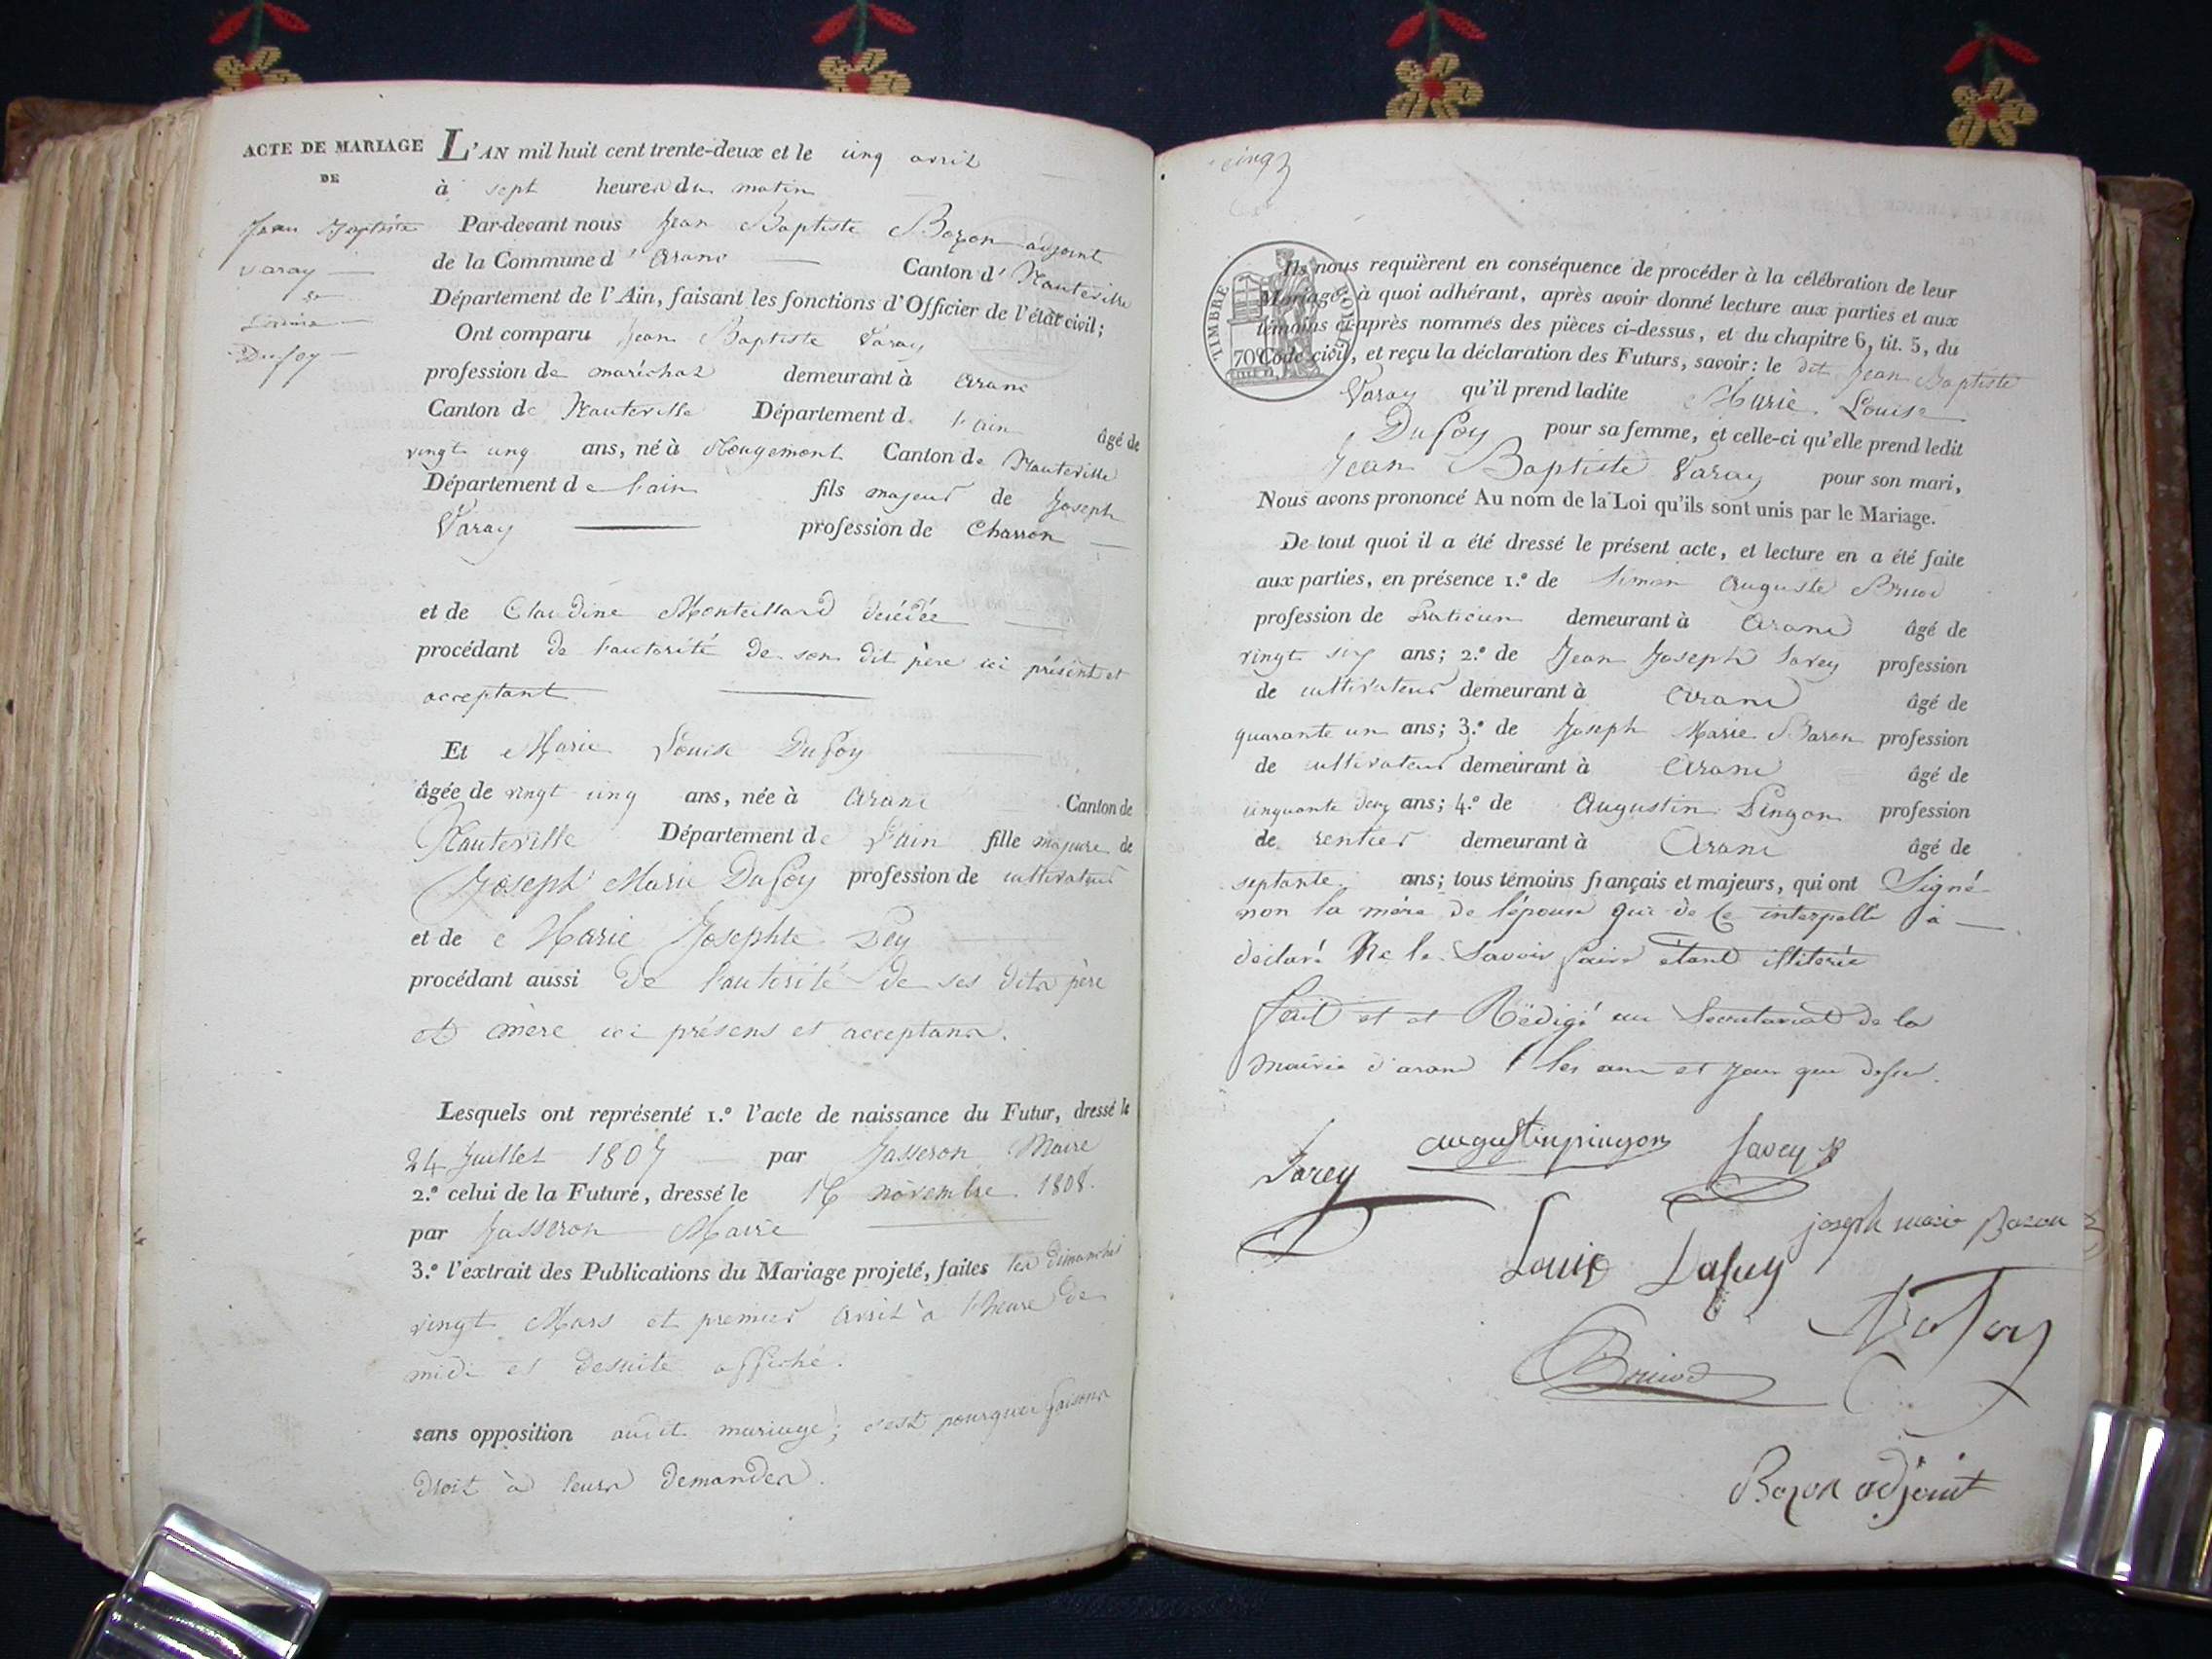 ACTE DE MARIAGE
DE
Jean Baptiste
Varay
et
Louise
Dufoy
L'AN mil huit cent trente-deux et le cinq avril
à sept heures du matin
Par-devant nous Jean Baptiste Bozon adjoint
de la Commune d'Aranc Canton d'Hauteville
Département de l'Ain, faisant les fonctions d'Officier de l'état civil;
Ont comparu Jean Baptiste Varay
profession de maréchal demeurant à Aranc
Canton de Hauteville Département de l'ain âgé de
vingt cinq ans, né à Rougemont Canton de Hauteville
Département de l'ain fils majeur de Joseph
Varay profession de Charron
et de Claudine Monteillard décédée
procédant de l'autorité de son dit père ici présent et
acceptant
Et Marie Louise Dufoy
âgée de vingt cinq ans, née à Aranc Canton de
Hauteville Département de l'ain fille majeure de
Joseph Marie Dufoy profession de cultivateur
et de Marie Josephte Pey
procédant aussi de l'autorité de ses dits père
et mère ici présens et acceptans.
Lesquels ont représenté 1.º l'acte de naissance du Futur, dressé le
24 Juillet 1807 par Jasseron Maire
2.º celui de la Future, dressé le 16 novembre 1808.
par Jasseron Maire
3.º l'extrait des Publications du Mariage projeté, faites les dimanches
vingt Mars et premier avril à l'heure de
midi et desuite affiché.
sans opposition audit mariage; c'est pourquoi faisons
droit à leurs demandes.
cinq
TIMBRE ROYAL
70
Ils nous requièrent en conséquence de procéder à la célébration de leur
Mariage, à quoi adhérant, après avoir donné lecture aux parties et aux
témoins ci-après nommés des pièces ci-dessus, et du chapitre 6, tit. 5, du
Code civil, et reçu la déclaration des Futurs, savoir: le dit Jean Baptiste
Varay qu'il prend ladite Marie Louise
Dufoy pour sa femme, et celle-ci qu'elle prend ledit
Jean Baptiste Varay pour son mari,
Nous avons prononcé Au nom de la Loi qu'ils sont unis par le Mariage.
De tout quoi il a été dressé le présent acte, et lecture en a été faite
aux parties, en présence 1.º de Simon Auguste Bruod
profession de Praticien demeurant à Aranc âgé de
vingt six ans; 2.º de Jean Joseph Savey profession
de cultivateur demeurant à Aranc âgé de
quarante un ans; 3.º de Joseph Marie Bozon profession
de cultivateur demeurant à Aranc âgé de
cinquante deux ans; 4.º de Augustin Pingon profession
de rentier demeurant à Aranc âgé de
septante ans; tous témoins français et majeurs, qui ont Signé
non la mère de l'épouse qui de ce interpellé a
déclaré Ne le Savoir faire étant illiterée
fait et Rédigé au Secretariat de la
mairie d'aranc les an et jour que dessus.
Varey augustin pingon Savey
joseph marie Bozon
Louis Dafuy
Dufoy
Bruod
Bozon adjoint